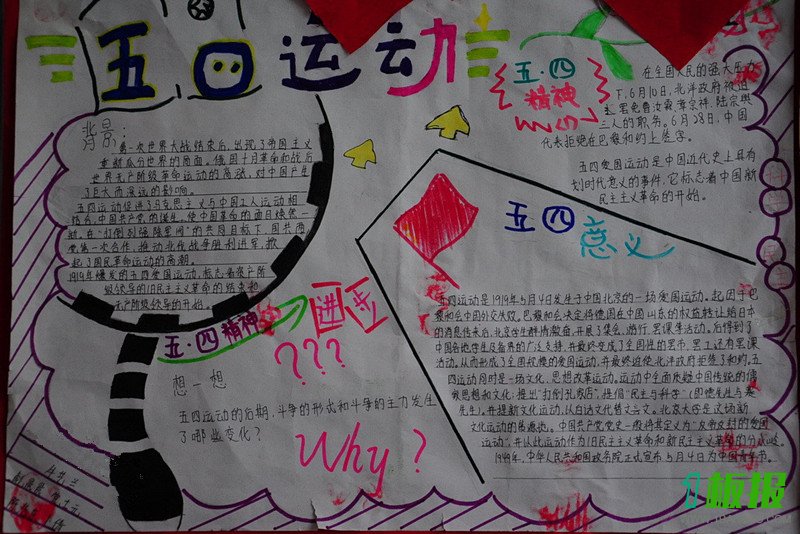 五四运动
背景:
第一次世界大战结束后,出现了帝国主义
重新瓜分世界的局面。俄国十月革命和战后
世界无产阶级革命运动的高涨,对中国产生
了巨大而深远的影响。
五四运动促进了马克思主义与中国工人运动相
结合,中国共产党的诞生,使中国革命的面目焕然一
新。在“打倒列强除军阀”的共同目标下,国共两
党第一次合作,推动北伐战争胜利进军,掀
起了国民革命运动的高潮。
1919年爆发的五四爱国运动,标志着资产阶
级领导的旧民主主义革命的结束和
无产阶级领导的开始。
五·四
精神
在全国人民的强大压力
下,6月10日,北洋政府被迫
罢免曹汝霖、章宗祥、陆宗舆
三人的职务。6月28日,中国
代表拒绝在巴黎和约上签字。
五四爱国运动是中国近代史上具有
划时代意义的事件,它标志着中国新
民主主义革命的开始。
五四意义
五四运动是1919年5月4日发生于中国北京的一场爱国运动。起因于巴
黎和会中国外交失败,巴黎和会决定将德国在中国山东的权益转让给日本
的消息传来后,北京学生群情激奋,开展了集会、游行、罢课等活动。后得到了
中国各地学生及各界的广泛支持,并最终变成了全国性的罢市、罢工还有罢课
活动。从而形成了全国规模的爱国运动,并最终迫使北洋政府拒签了和约。五
四运动同时是一场文化、思想改革运动。运动中全面质疑中国传统的儒
家思想和文化,提出“打倒孔家店”,提倡“民主与科学”(即德先生与赛
先生),并提新文化运动,以白话文替文言文。北京大学是这场新
文化运动的策源地。中国共产党党史一般将其定义为“反帝反封的爱国
运动”,并以此运动作为旧民主主义革命和新民主主义革命的分水岭。
1949年,中华人民共和国政务院正式宣布5月4日为中国青年节。
五·四精神
???
想一想
五四运动的后期,斗争的形式和斗争的主力发生
了哪些变化?
Why?
板报